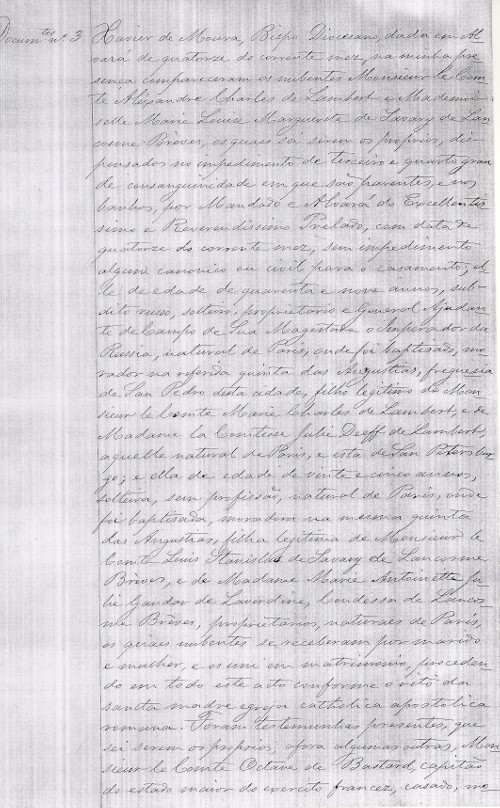 Documtos nº 3
Xavier de Moura, Bispo Diocesano, dada em Al-
vará de quatorze do corrente mez, na minha pre
sença compareceram os nubentes Monsieur le Com
te Alexandre Charles de Lambert e Mademoi-
selle Marie Louise Marguerite de Savary de Lan
cosme Brèves, os quaes sei serem os proprios, dis-
pensados no impedimento de terceiro e quarto grau
de consanguinidade em que são parentes, e nos
banhos, por Mandado e Alvará do Excellentis
simo e Reverendissimo Prelado, com data de
quatorze do corrente mez, sem impedimento
algum canonico ou civil para o casamento; el
le de edade de quarenta e nove annos, sub-
dito russo, solteiro, proprietario e General Ajudan
te de Campo de Sua Magestade o Imperador da
Russia, natural de Paris, onde foi baptisado, mo
rador na referida quinta das Angustias, freguesia
de San Pedro desta cidade, filho legitimo de Mon
sieur le Comte Marie Charles de Lambert, e de
Madame la Comtesse Julie Deeff de Lambert,
aquelle natural de Paris, e esta de San Petersbur
go; e ella de edade de vinte e cinco annos,
solteira, sem profissão, natural de Paris, onde
foi baptisada, moradora na mesma quinta
das Angustias, filha legitima de Monsieur le
Comte Luis Stanislas de Savary de Lancosme
Brèves, e de Madame Marie Antoinette Ju
lie Gaudor de Laverdine, Condessa de Lancos
me Brèves, proprietarios, naturaes de Paris,
os quaes nubentes se receberam por marido
e mulher, e os uni em matrimonio, proceden
do em todo este acto conforme o rito da
santa madre egreja catholica apostolica
romana. Foram testemunhas presentes, que
sei serem os proprios, afora algumas outras, Mon
sieur le Comte Octave de Bastard, capitão
do estado maior do exercito francez, casado, mo